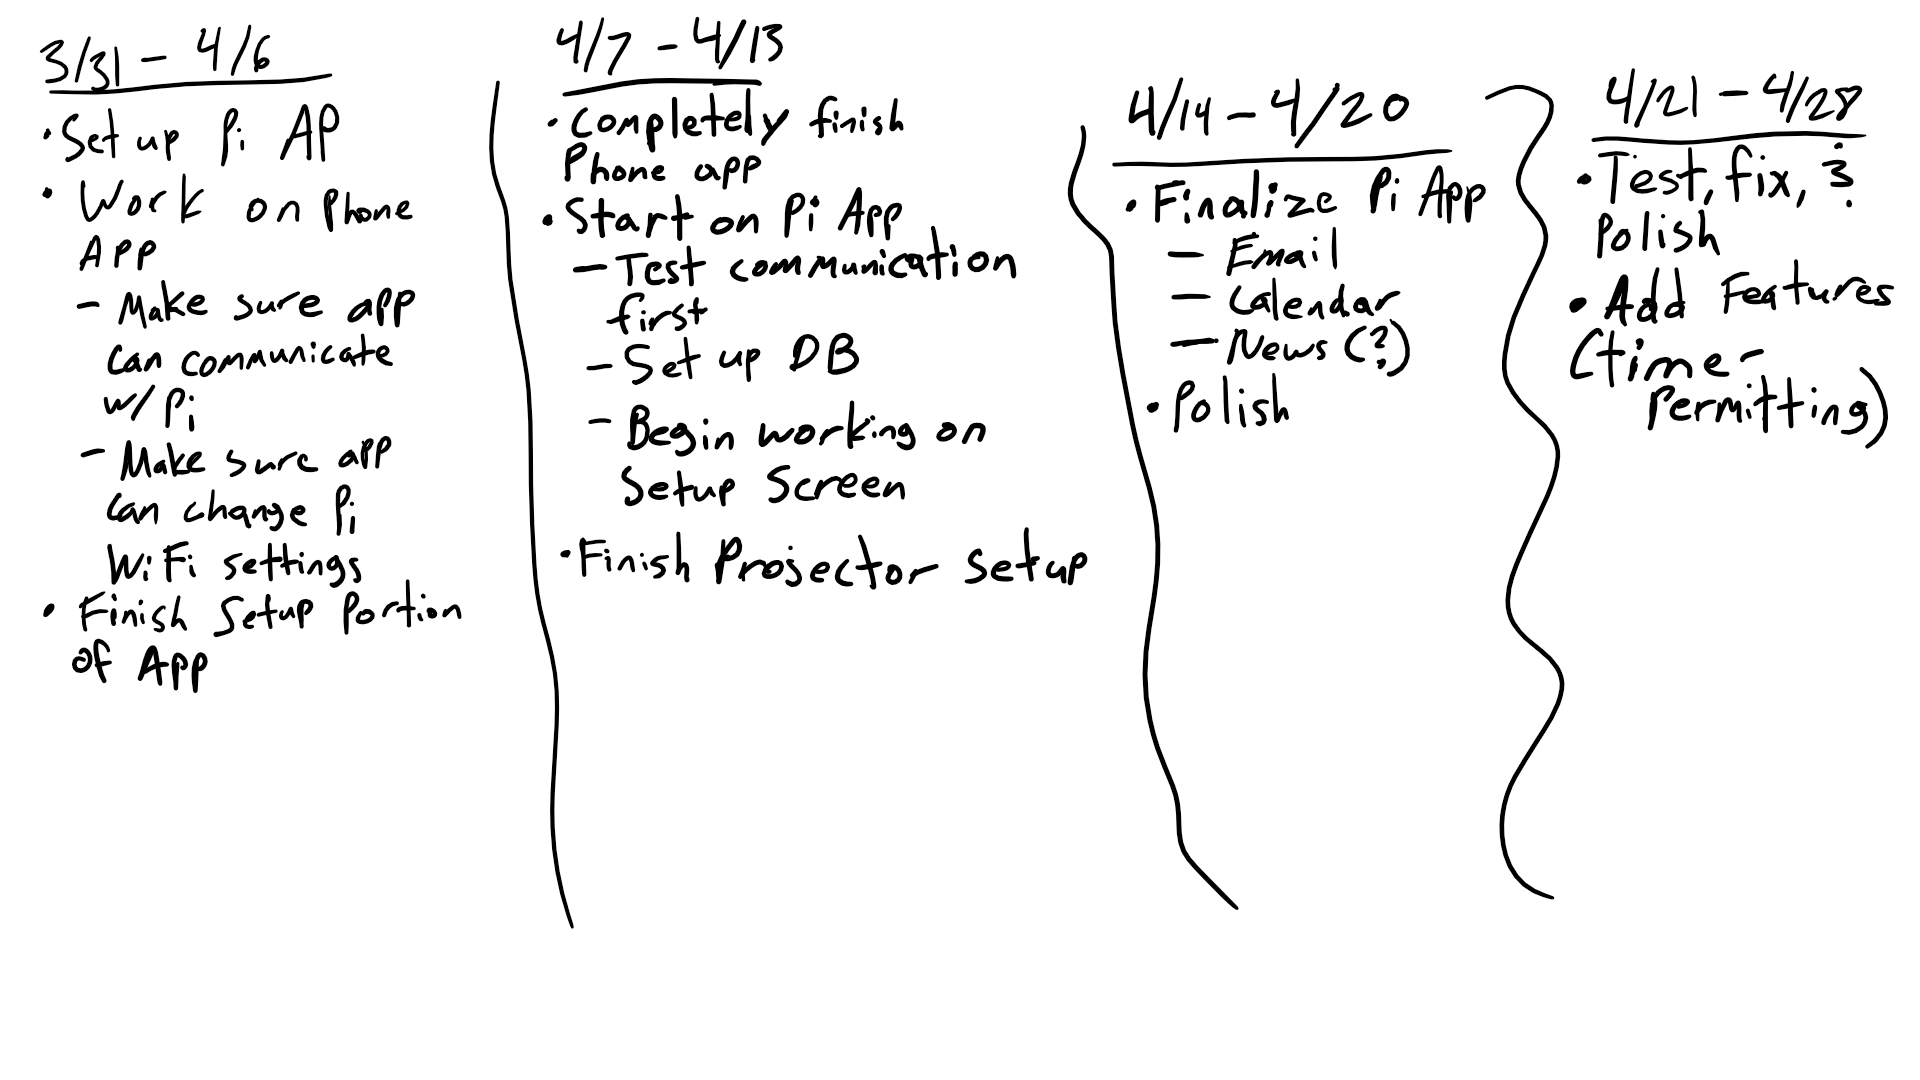 3/31 - 4/6
• Set up Pi AP
• Work on Phone
App
- Make sure app
can communicate
w/ Pi
- Make sure app
can change Pi
WiFi settings
• Finish Setup Portion
of App
4/7 - 4/13
• Completely finish
Phone app
• Start on Pi App
- Test communication
first
- Set up DB
- Begin working on
Setup Screen
• Finish Projector setup
4/14 - 4/20
• Finalize Pi App
- Email
- Calendar
- News (?)
• Polish
4/21 - 4/28
• Test, fix, &
Polish
• Add Features
(time
Permitting)